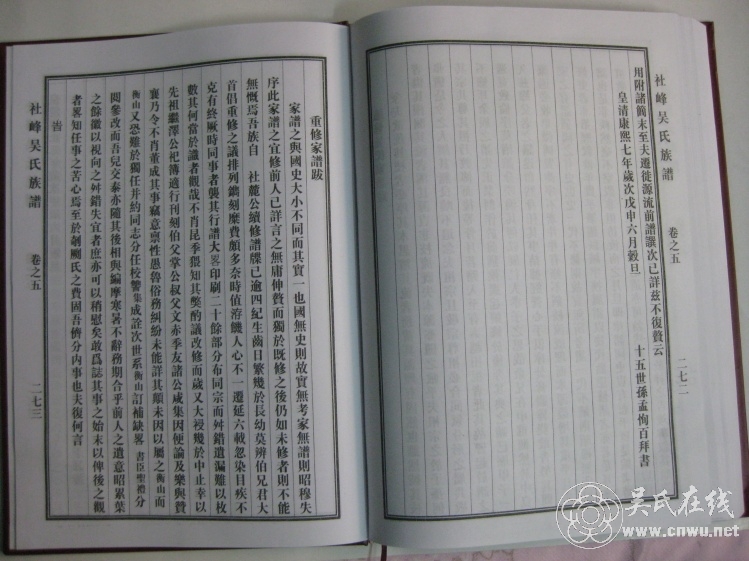 社峰吴氏族譜
卷之五
二七二
用附諸簡末至夫遷徙源流前譜譔次已詳茲不復贅云
皇清康熙七年歲次戊申六月榖旦
十五世孫孟恂百拜書
重修家譜跋
家譜之與國史大小不同而其實一也國無史則故實無考家無譜則昭穆失
序此家譜之宜修前人已詳言之無庸伸贅而獨於既修之後仍如未修者則不能
無慨焉吾族自 社麓公續修譜牒已逾四紀生齒日繁幾於長幼莫辨伯兄君大
首倡重修之議排列鐫刻糜費頗多奈時值洊饑人心不一遷延六載忽染目疾不
克有終厥時同事者襲其行譜大畧印刷二十餘部分布同宗而舛錯遺漏難以枚
數其何當於識者觀哉不肖昆季猥知其槩酌議改修而歲又大祲幾於中止幸以
先祖繼澤公祀薄適行刊刻伯父掌公叔父文亦季友諸公咸集因便論及樂與贊
襄乃令不肖董成其事竊意禀性愚魯俗務糾紛未能詳其顛末因以屬之衡山而
衡山又恐難於獨任并約同志分任校讐集成詮次世系衡山訂補缺畧 書臣聖禮分
閱參改而吾兒交泰亦隨其後相與編摩寒暑不辭務期合乎前人之遺意昭累葉
之餘徽以視向之舛錯失宜者庶亦可以稍慰矣敢爲誌其事之始末以俾後之觀
者畧知任事之苦心焉至於剞劂氏之費固吾儕分内事也夫復何言
社峰吴氏族譜
卷之五
二七三
吴氏在线
www.cnwu.net